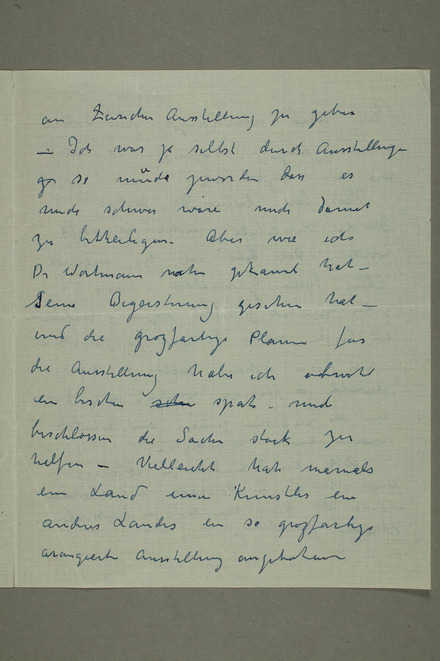 an Züricher Ausstellung zu geben
– Ich war ja selbst durch Ausstellungen
gar so müde geworden dass es
mich schwer wäre mich damit
zu beteiligen. Aber wie ich
Dr Wartmann näher gekannt hat –
Seine Begeisterung gesehen hat –
und die grozfartige Planen for
die Ausstellung habe ich obwohl
ein bischen spät – mich
beschlossen die Sache stark zu
helfen – Vielleicht hat niemals
ein Land einen Künstler ein
andres Landes ein so grozfartige
arangierte Ausstellung angeboten